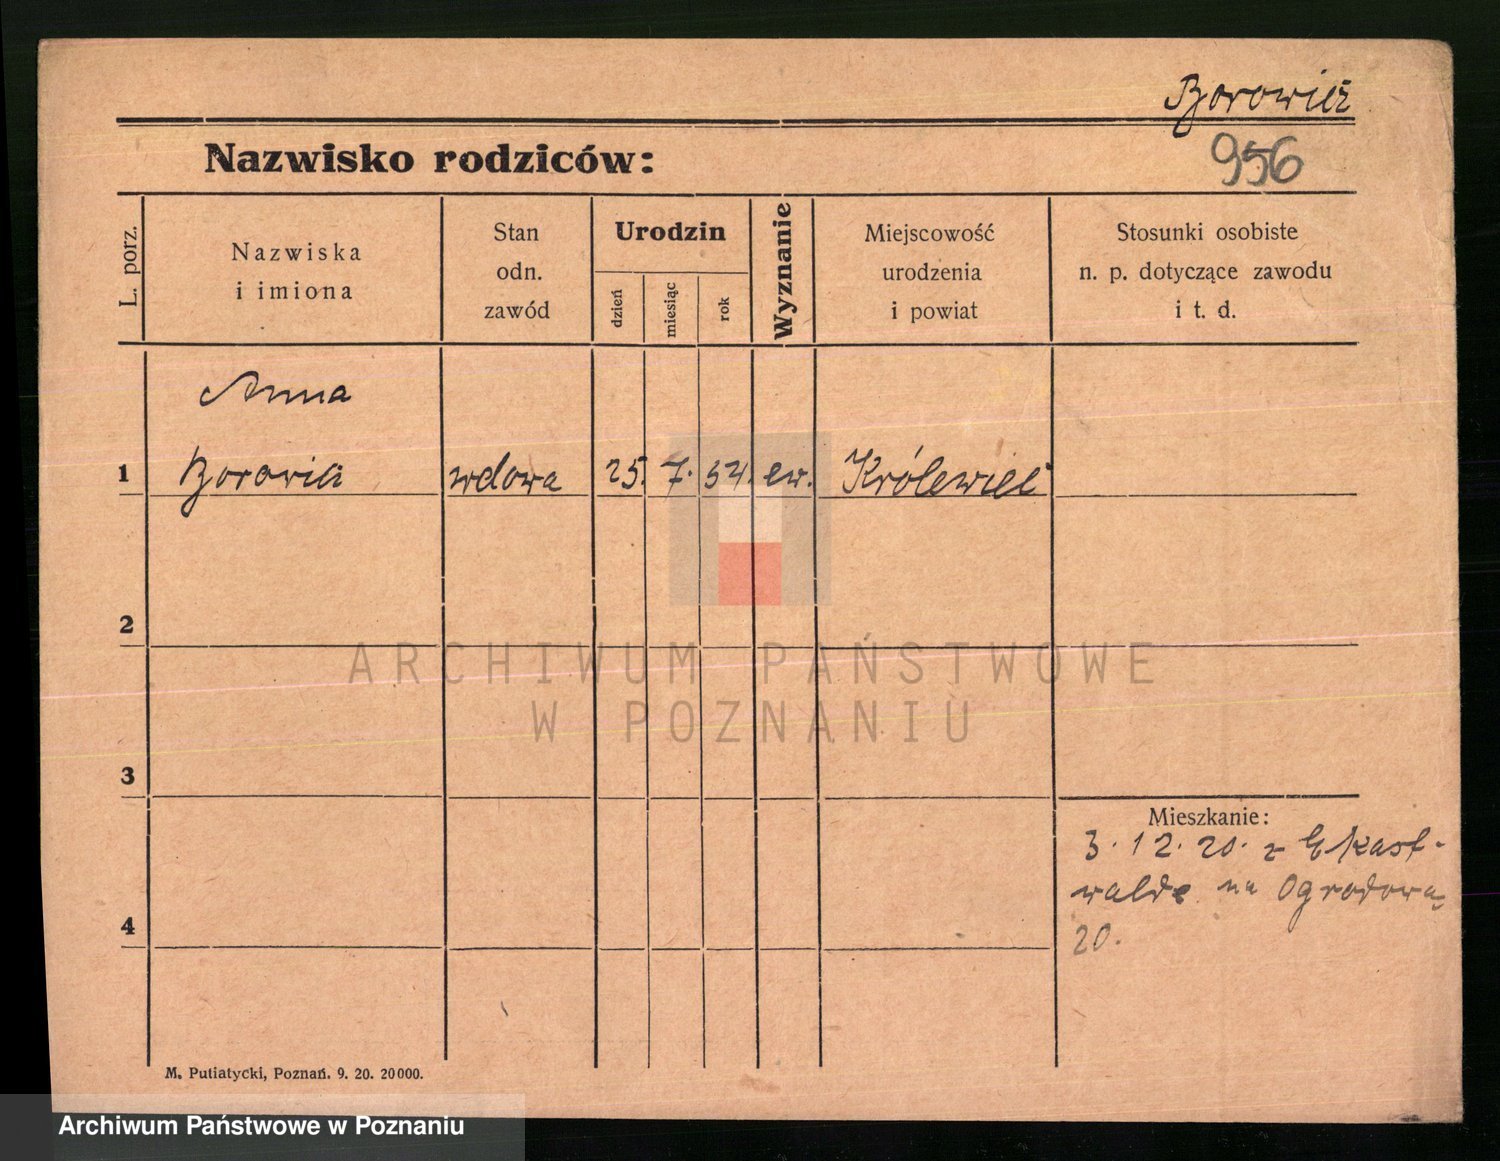 Borowicz
Nazwisko rodziców:
956
L. porz.
Nazwiska
i imiona
Stan
odn.
zawód
Urodzin
dzień
miesiąc
rok
Wyznanie
Miejscowość
urodzenia
i powiat
Stosunki osobiste
n. p. dotyczące zawodu
i t. d.
Anna
1 wdowa 25. 7. ew. Królewiec
2
ARCHIWUM PAŃSTWOWE
W POZNANIU
3
Mieszkanie:
3. 12. 20. z
walde na Ogrodową
4
20.
M. Putiatycki, Poznań. 9. 20. 20000.
Archiwum Państwowe w Poznaniu